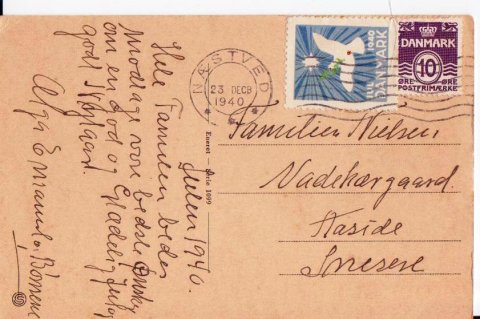 Julen 1940.
Hele Familien bedes
Modtage vore bedste Ønsker
om en God og Glædelig Jul og
godt Nytaar.
& Børnene
Eneret — Serie 1099
NÆSTVED
23 DECB
1940
JUL 1940
DANMARK
DANMARK
10
ØRE ØRE
POSTFRIMÆRKE
Familien Nielsen
Snesere